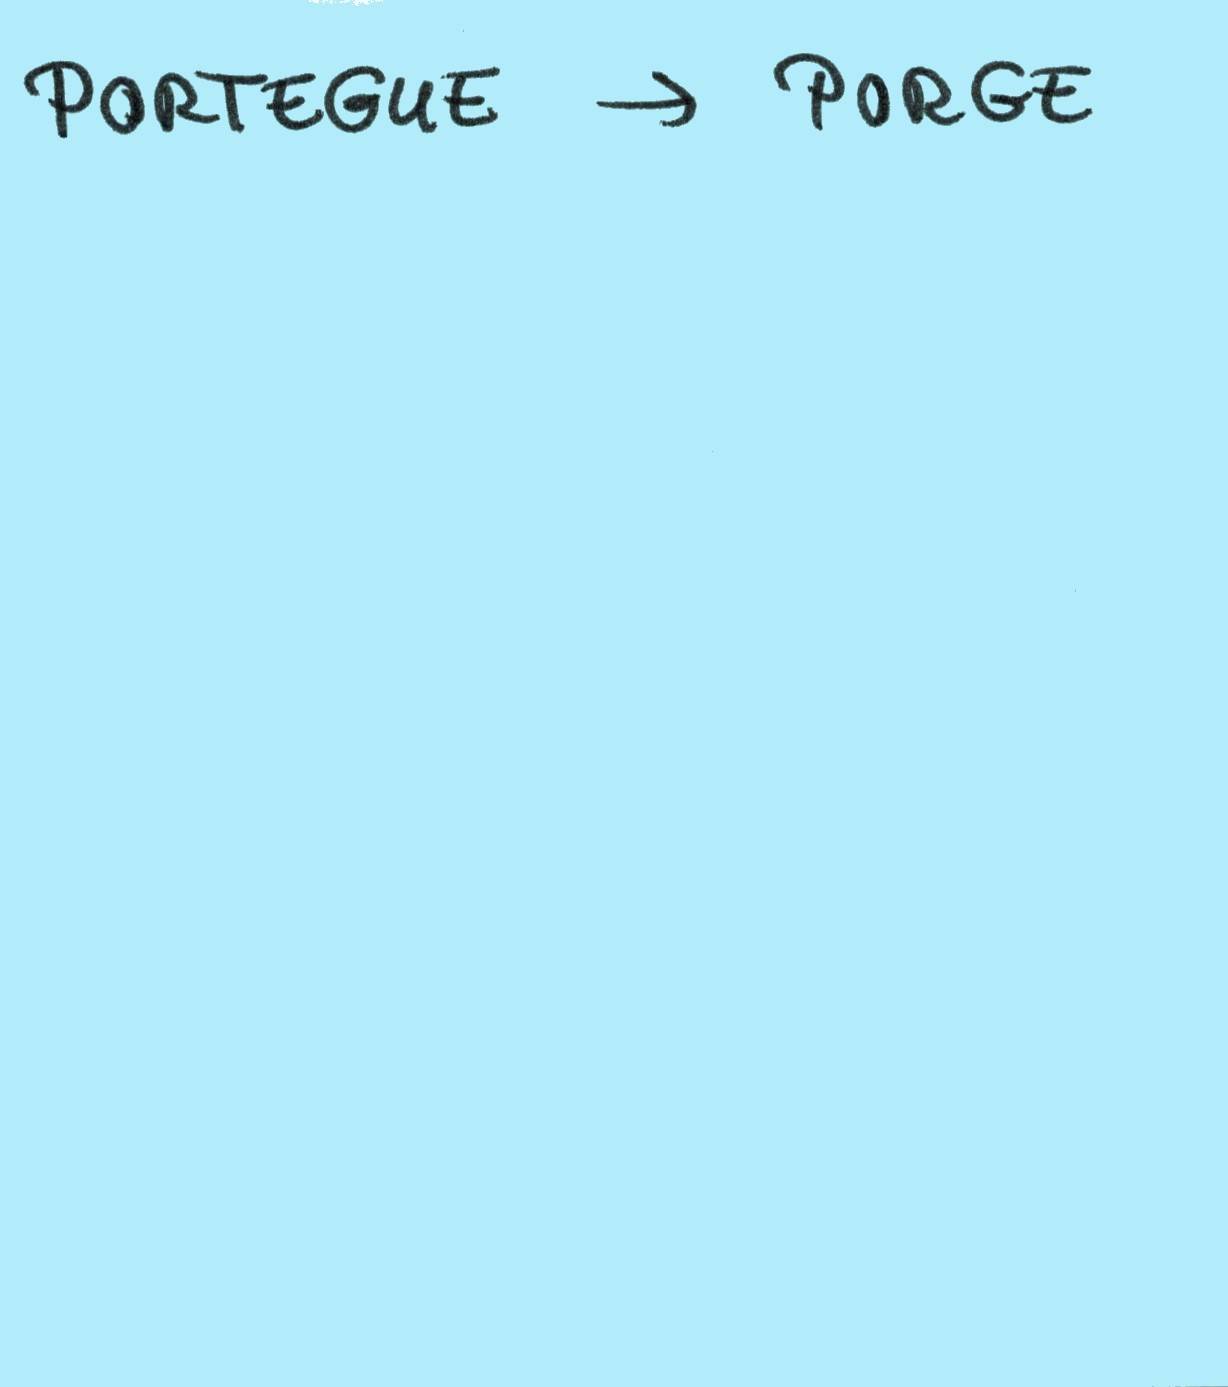 PORTEGUE → PORGE